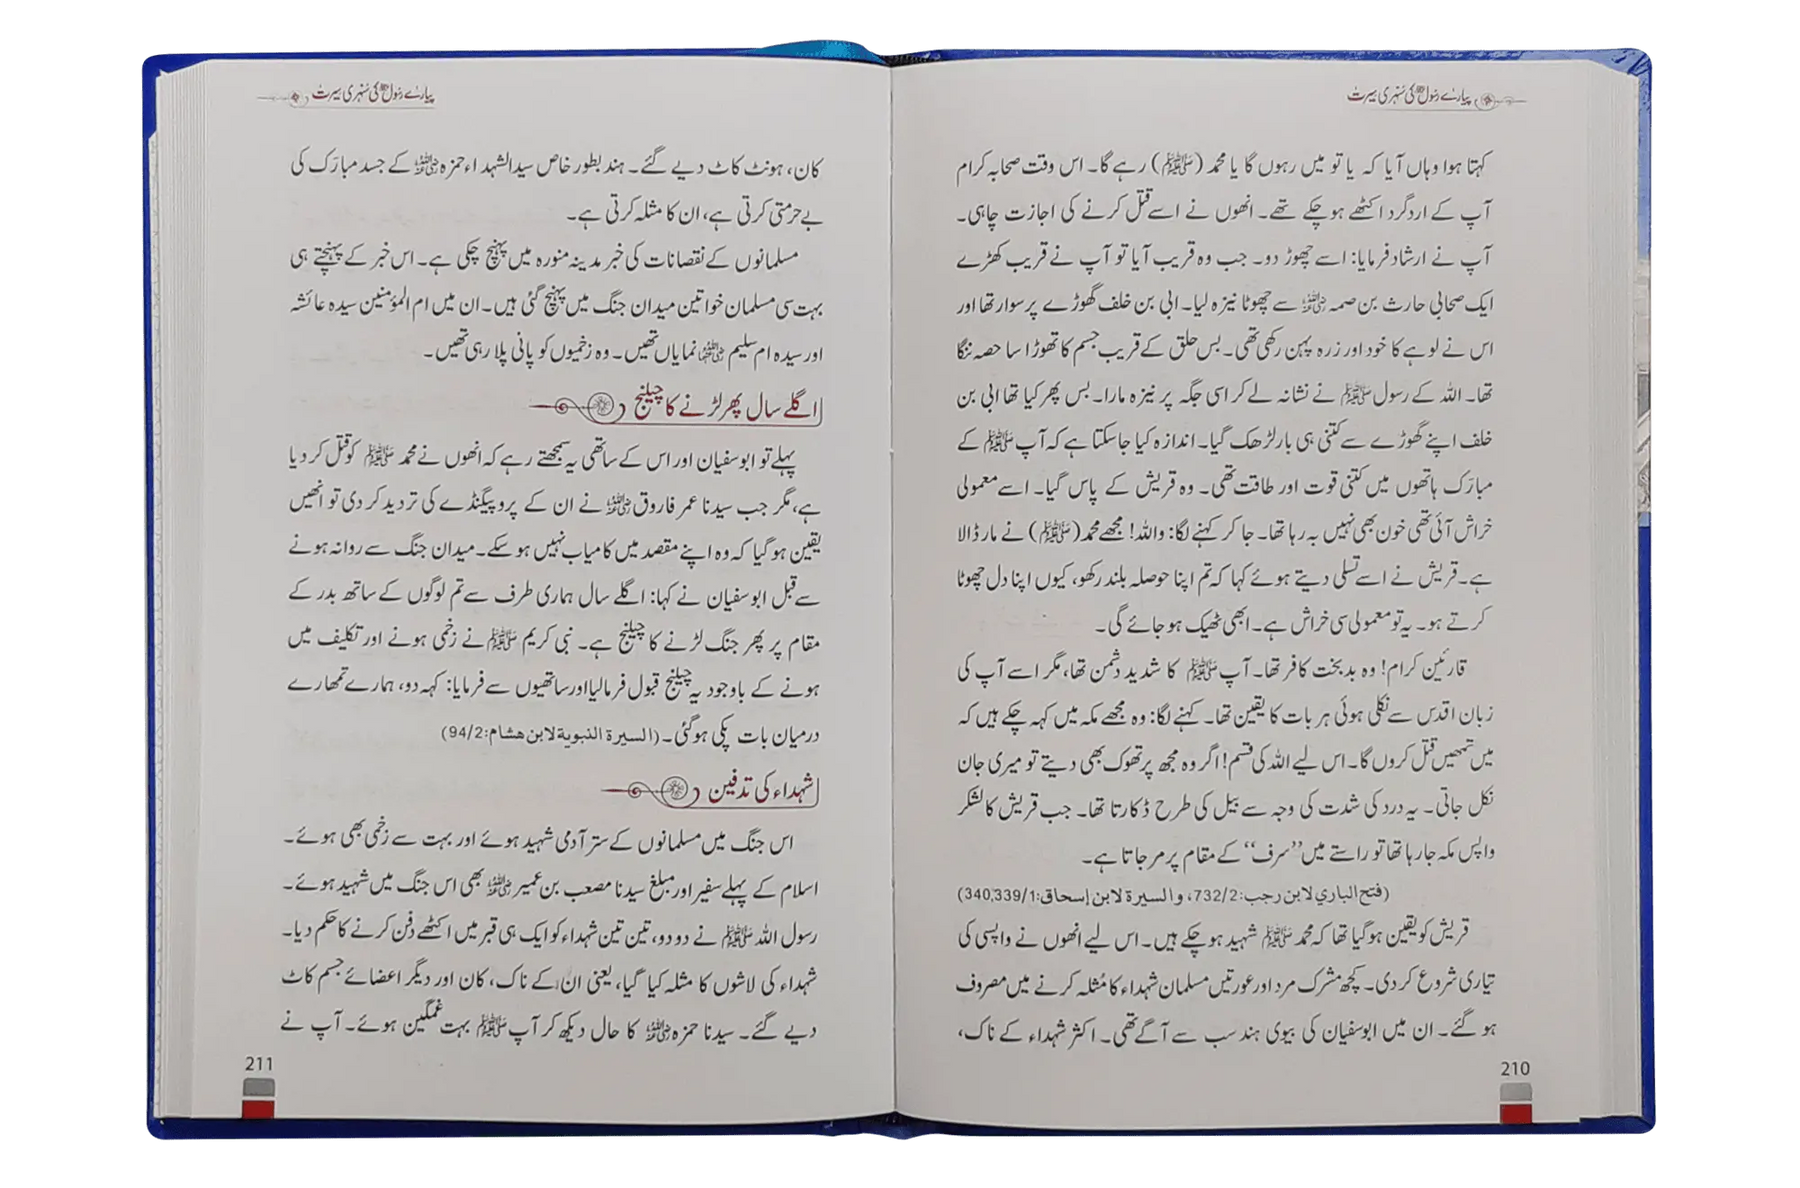 پیارے رسول ﷺ کی سنہری سیرت
کہتا ہوا وہاں آیا کہ یا تو میں رہوں گا یا محمد (ﷺ) رہے گا۔ اس وقت صحابہ کرام
آپ کے اردگرد اکٹھے ہو چکے تھے۔ انھوں نے اسے قتل کرنے کی اجازت چاہی۔
آپ نے ارشاد فرمایا: اسے چھوڑ دو۔ جب وہ قریب آیا تو آپ نے قریب کھڑے
ایک صحابی حارث بن صمہ رضی اللہ عنہ سے چھوٹا نیزہ لیا۔ ابی بن خلف گھوڑے پر سوار تھا اور
اس نے لوہے کا خود اور زرہ پہن رکھی تھی۔ بس حلق کے قریب جسم کا تھوڑا سا حصہ ننگا
تھا۔ اللہ کے رسول ﷺ نے نشانہ لے کر اسی جگہ پر نیزہ مارا۔ بس پھر کیا تھا ابی بن
خلف اپنے گھوڑے سے کتنی ہی بار لڑھک گیا۔ اندازہ کیا جا سکتا ہے کہ آپ ﷺ کے
مبارک ہاتھوں میں کتنی قوت اور طاقت تھی۔ وہ قریش کے پاس گیا۔ اسے معمولی
خراش آئی تھی خون بھی نہیں بہ رہا تھا۔ جا کر کہنے لگا: واللہ! مجھے محمد (ﷺ) نے مار ڈالا
ہے۔ قریش نے اسے تسلی دیتے ہوئے کہا کہ تم اپنا حوصلہ بلند رکھو، کیوں اپنا دل چھوٹا
کرتے ہو۔ یہ تو معمولی سی خراش ہے۔ ابھی ٹھیک ہو جائے گی۔
قارئین کرام! وہ بدبخت کافر تھا۔ آپ ﷺ کا شدید دشمن تھا، مگر اسے آپ کی
زبان اقدس سے نکلی ہوئی ہر بات کا یقین تھا۔ کہنے لگا: وہ مجھے مکہ میں کہہ چکے ہیں کہ
میں تمھیں قتل کروں گا۔ اس لیے اللہ کی قسم! اگر وہ مجھ پر تھوک بھی دیتے تو میری جان
نکل جاتی۔ یہ درد کی شدت کی وجہ سے بیل کی طرح ڈکارتا تھا۔ جب قریش کا لشکر
واپس مکہ جا رہا تھا تو راستے میں ’’سرف‘‘ کے مقام پر مر جاتا ہے۔
(فتح الباري لابن رجب:732/2، والسيرة لابن إسحاق:340,339/1)
قریش کو یقین ہو گیا تھا کہ محمد ﷺ شہید ہو چکے ہیں۔ اس لیے انھوں نے واپسی کی
تیاری شروع کر دی۔ کچھ مشرک مرد اور عورتیں مسلمان شہداء کا مُثلہ کرنے میں مصروف
ہو گئے۔ ان میں ابوسفیان کی بیوی ہند سب سے آگے تھی۔ اکثر شہداء کے ناک،
210
پیارے رسول ﷺ کی سنہری سیرت
کان، ہونٹ کاٹ دیے گئے۔ ہند بطور خاص سید الشہداء حمزہ رضی اللہ عنہ کے جسد مبارک کی
بے حرمتی کرتی ہے، ان کا مثلہ کرتی ہے۔
مسلمانوں کے نقصانات کی خبر مدینہ منورہ میں پہنچ چکی ہے۔ اس خبر کے پہنچتے ہی
بہت سی مسلمان خواتین میدان جنگ میں پہنچ گئی ہیں۔ ان میں ام المؤمنین سیدہ عائشہ
اور سیدہ ام سلیم رضی اللہ عنہا نمایاں تھیں۔ وہ زخمیوں کو پانی پلا رہی تھیں۔
اگلے سال پھر لڑنے کا چیلنج
پہلے تو ابوسفیان اور اس کے ساتھی یہ سمجھتے رہے کہ انھوں نے محمد ﷺ کو قتل کر دیا
ہے، مگر جب سیدنا عمر فاروق رضی اللہ عنہ نے ان کے پروپیگنڈے کی تردید کر دی تو انھیں
یقین ہو گیا کہ وہ اپنے مقصد میں کامیاب نہیں ہو سکے۔ میدان جنگ سے روانہ ہونے
سے قبل ابوسفیان نے کہا: اگلے سال ہماری طرف سے تم لوگوں کے ساتھ بدر کے
مقام پر پھر جنگ لڑنے کا چیلنج ہے۔ نبی کریم ﷺ نے زخمی ہونے اور تکلیف میں
ہونے کے باوجود یہ چیلنج قبول فرمالیا اور ساتھیوں سے فرمایا: کہہ دو، ہمارے تمھارے
درمیان بات پکی ہو گئی۔ (السيرة النبوية لابن هشام:94/2)
شہداء کی تدفین
اس جنگ میں مسلمانوں کے ستر آدمی شہید ہوئے اور بہت سے زخمی بھی ہوئے۔
اسلام کے پہلے سفیر اور مبلغ سیدنا مصعب بن عمیر رضی اللہ عنہ بھی اس جنگ میں شہید ہوئے۔
رسول اللہ ﷺ نے دو دو، تین تین شہداء کو ایک ہی قبر میں اکٹھے دفن کرنے کا حکم دیا۔
شہداء کی لاشوں کا مثلہ کیا گیا، یعنی ان کے ناک، کان اور دیگر اعضائے جسم کاٹ
دیے گئے۔ سیدنا حمزہ رضی اللہ عنہ کا حال دیکھ کر آپ ﷺ بہت غمگین ہوئے۔ آپ نے
211